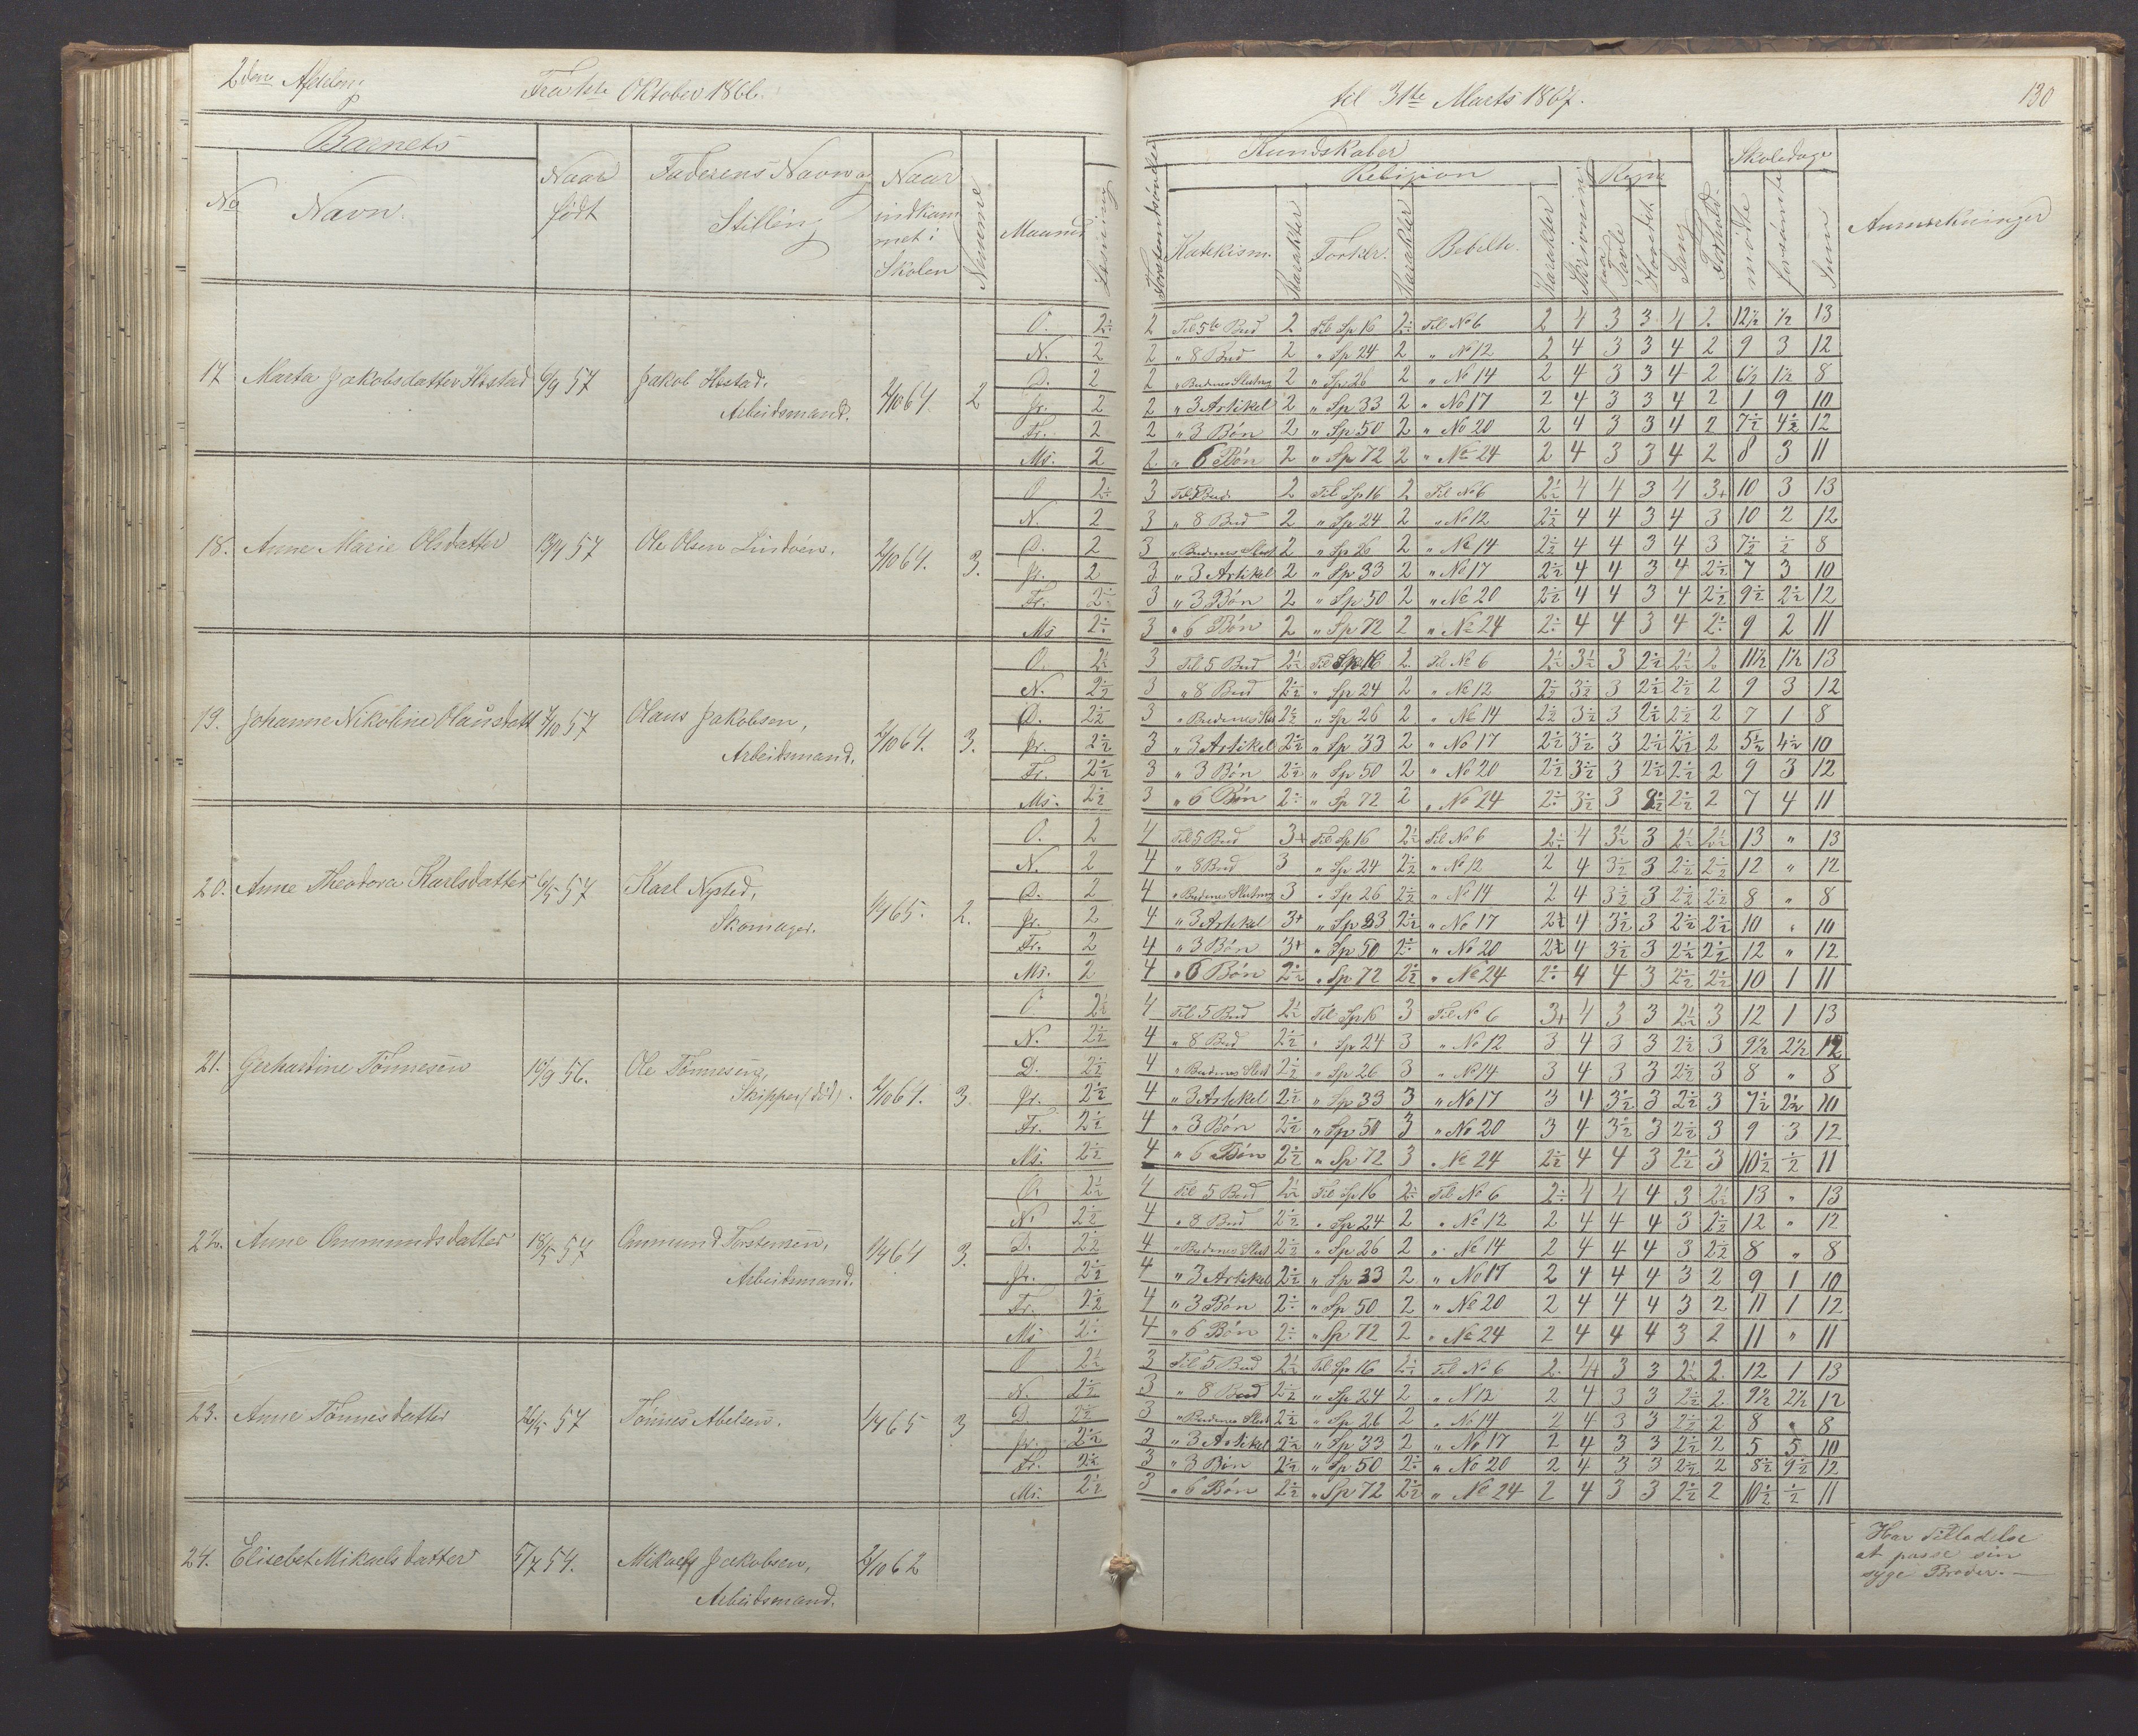 2den Afdeling Fra 1ste Oktober 1866. til 31te Marts 1867. 130
Barnets Naar født Faderens Navn og Stilling Naar indkommet i Skolen Nemme Maaned Læsning Forstandsöndler Kundskaber Skoledage Anmærkninger
No Navn. Religion Skrivning Regn Sang Forhold mödte forsömte Sum
Katekism. Karakter Forklr. Karakter Bibelh. Karakter paa Tavle Hovedet
17 Marta Jakobsdatter Hostad 6/9 57 Jakob Hostad, Arbeidsmand. 2/10 64. 2
O. 2÷ 2 Til 5te Bud 2 Til Sp 16 2÷ Til No 6 2 4 3 3 4 2 12½ ½ 13
N. 2 2 " 8 Bud 2 " Sp 24 2 " No 12 2 4 3 3 4 2 9 3 12
D. 2 2 " Budenes Slutng 2 " Sp 26 2 " No 14 2 4 3 3 4 2 6½ 1½ 8
Jr. 2 2 " 3 Artikel 2 " Sp 33 2 " No 17 2 4 3 3 4 2 1 9 10
Fr. 2 2 " 3 Bön 2 " Sp 50 2 " No 20 2 4 3 3 4 2 7½ 4½ 12
Ms. 2 2 " 6 Bön 2 " Sp 72 2 " No 24 2 4 3 3 4 2 8 3 11
18. Anne Marie Olsdatter 13/9 57 Ole Olsen 2/10 64. 3.
O 2÷ 3 Til 5 Bud 2 Til Sp 16 2 Til No 6 2½ 4 4 3 4 3+ 10 3 13
N. 2 3 " 8 Bud 2 " Sp 24 2 " No 12 2½ 4 4 3 4 3 10 2 12
D. 2 3 " Budenes Slut 2 " Sp 26 2 " No 14 2½ 4 4 3 4 3 7½ ½ 8
Jr. 2 3 " 3 Artikel 2 " Sp 33 2 " No 17 2½ 4 4 3 4 2½ 7 3 10
Fr. 2÷ 3 " 3 Bön 2 " Sp 50 2 " No 20 2½ 4 4 3 4 2½ 9½ 2½ 12
Ms 2÷ 3 " 6 Bön 2 " Sp 72 2 " No 24 2÷ 4 4 3 4 2÷ 9 2 11
19. Johanne Nikoline Olausdatt 7/10 57 Olaus Jakobsen, Arbeidsmand. 2/10 64. 3.
O. 2½ 3 Til 5 Bud 2½ Til Sp 16 2 Til No 6 2½ 3½ 3 2½ 2½ 2 11½ 1½ 13
N. 2½ 3 " 8 Bud 2½ " Sp 24 2 " No 12 2½ 3½ 3 2½ 2½ 2 9 3 12
D. 2½ 3 " Budenes Slut 2½ " Sp 26 2 " No 14 2½ 3½ 3 2½ 2½ 2 7 1 8
Jr. 2½ 3 " 3 Artikel 2½ " Sp 33 2 " No 17 2½ 3½ 3 2½ 2½ 2 5½ 4½ 10
Fr. 2½ 3 " 3 Bön 2½ " Sp 50 2 " No 20 2½ 3½ 3 2½ 2½ 2 9 3 12
Ms. 2½ 3 " 6 Bön 2÷ " Sp 72 2 " No 24 2÷ 3½ 3 2½ 2½ 2 7 4 11
20. Anne Theodora Karlsdatter 6/5 57 Karl Nysted, Skomager. 1/4 65. 2.
O. 2 4 Til 5 Bud 3+ Til Sp 16 2½ Til No 6 2÷ 4 3½ 3 2½ 2½ 13 " 13
N. 2 4 " 8 Bud 3 " Sp 24 2½ " No 12 2 4 3½ 3 2½ 2½ 12 " 12
D. 2 4 " Budenes Slutnng 3 " Sp 26 2½ " No 14 2 4 3½ 3 2½ 2½ 8 " 8
Jr. 2 4 " 3 Artikel 3+ " Sp 33 2½ " No 17 2½ 4 3½ 3 2½ 2½ 10 " 10
Fr. 2 4 " 3 Bön 3+ " Sp 50 2÷ " No 20 2½ 4 3½ 3 2½ 2½ 12 " 12
Ms. 2 4 " 6 Bön 2½ " Sp 72 2½ " No 24 2÷ 4 4 3 2½ 2½ 10 1 11
21. Gerhardine Tönnesen 10/9 56. Ole Tönnesen, Skipper (död). 2/10 64. 3
O 2½ 4 Til 5 Bud 2½ Til Sp 16 3 Til No 6 3+ 4 3 3 2½ 3 12 1 13
N. 2½ 4 " 8 Bud 2½ " Sp 24 3 " No 12 3 4 3 3 2½ 3 9½ 2½ 12
D. 2½ 4 " Budenes Slut 2½ " Sp 26 3 " No 14 3 4 3 3 2½ 3 8 " 8
Jr. 2½ 4 " 3 Artikel 2½ " Sp 33 3 " No 17 3 4 3½ 3 2½ 3 7½ 2½ 10
Fr. 2½ 4 " 3 Bön 2½ " Sp 50 3 " No 20 3 4 3½ 3 2½ 3 9 3 12
Ms. 2½ 4 " 6 Bön 2½ " Sp 72 3 " No 24 2½ 4 4 3 2½ 3 10½ ½ 11
22. Anne Ommundsdatter 18/5 57 Ommund Torstensen, Arbeidsmand. 1/4 64 3.
O. 2½ 4 Til 5 Bud 2½ Til Sp 16 2÷ Til No 6 2÷ 4 4 4 3 2½ 13 " 13
N. 2½ 4 " 8 Bud 2½ " Sp 24 2 " No 12 2 4 4 4 3 2½ 12 " 12
D. 2½ 4 " Budenes Slut 2½ " Sp 26 2 " No 14 2 4 4 4 3 2½ 8 " 8
Jr. 2½ 4 " 3 Artikel 2½ " Sp 33 2 " No 17 2 4 4 4 3 2 9 1 10
Fr. 2½ 4 " 3 Bön 2÷ " Sp 50 2 " No 20 2 4 4 4 3 2 11 1 12
Ms 2÷ 4 " 6 Bön 2÷ " Sp 72 2 " No 24 2 4 4 4 3 2 11 " 11
23. Anne Tönnesdatter 26/5 57 Tönnes Abelsen. 1/4 65 3
O 2½ 3 Til 5 Bud 2½ Til Sp 16 2÷ Til No 6 2 4+ 3 3 2½ 2 12 1 13
N. 2½ 3 " 8 Bud 2½ " Sp 24 2 " N 12 2 4 3 3 2½ 2 9½ 2½ 12
D. 2½ 3 " Budenes Slut 2½ " Sp 26 2 " No 14 2 4 3 3 2½ 2 8 " 8
Jr. 2½ 3 " 3 Artikel 2½ " Sp 33 2 " No 17 2 4 3 3 2½ 2 5 5 10
Fr. 2½ 3 " 3 Bön 2½ " Sp 50 2÷ " No 20 2 4 3 3 2½ 2 8½ 9½ 12
Ms. 2½ 3 " 6 Bön 2½ " Sp 72 2½ " No 24 2 4 3 3 2½ 2 10½ ½ 11
24. Elisebet Mikaelsdatter 5/7 54. Mikael Jakobsen, Arbeidsmand. 2/10 62
Har Tilladelse
at passe sin
syge Broder. —